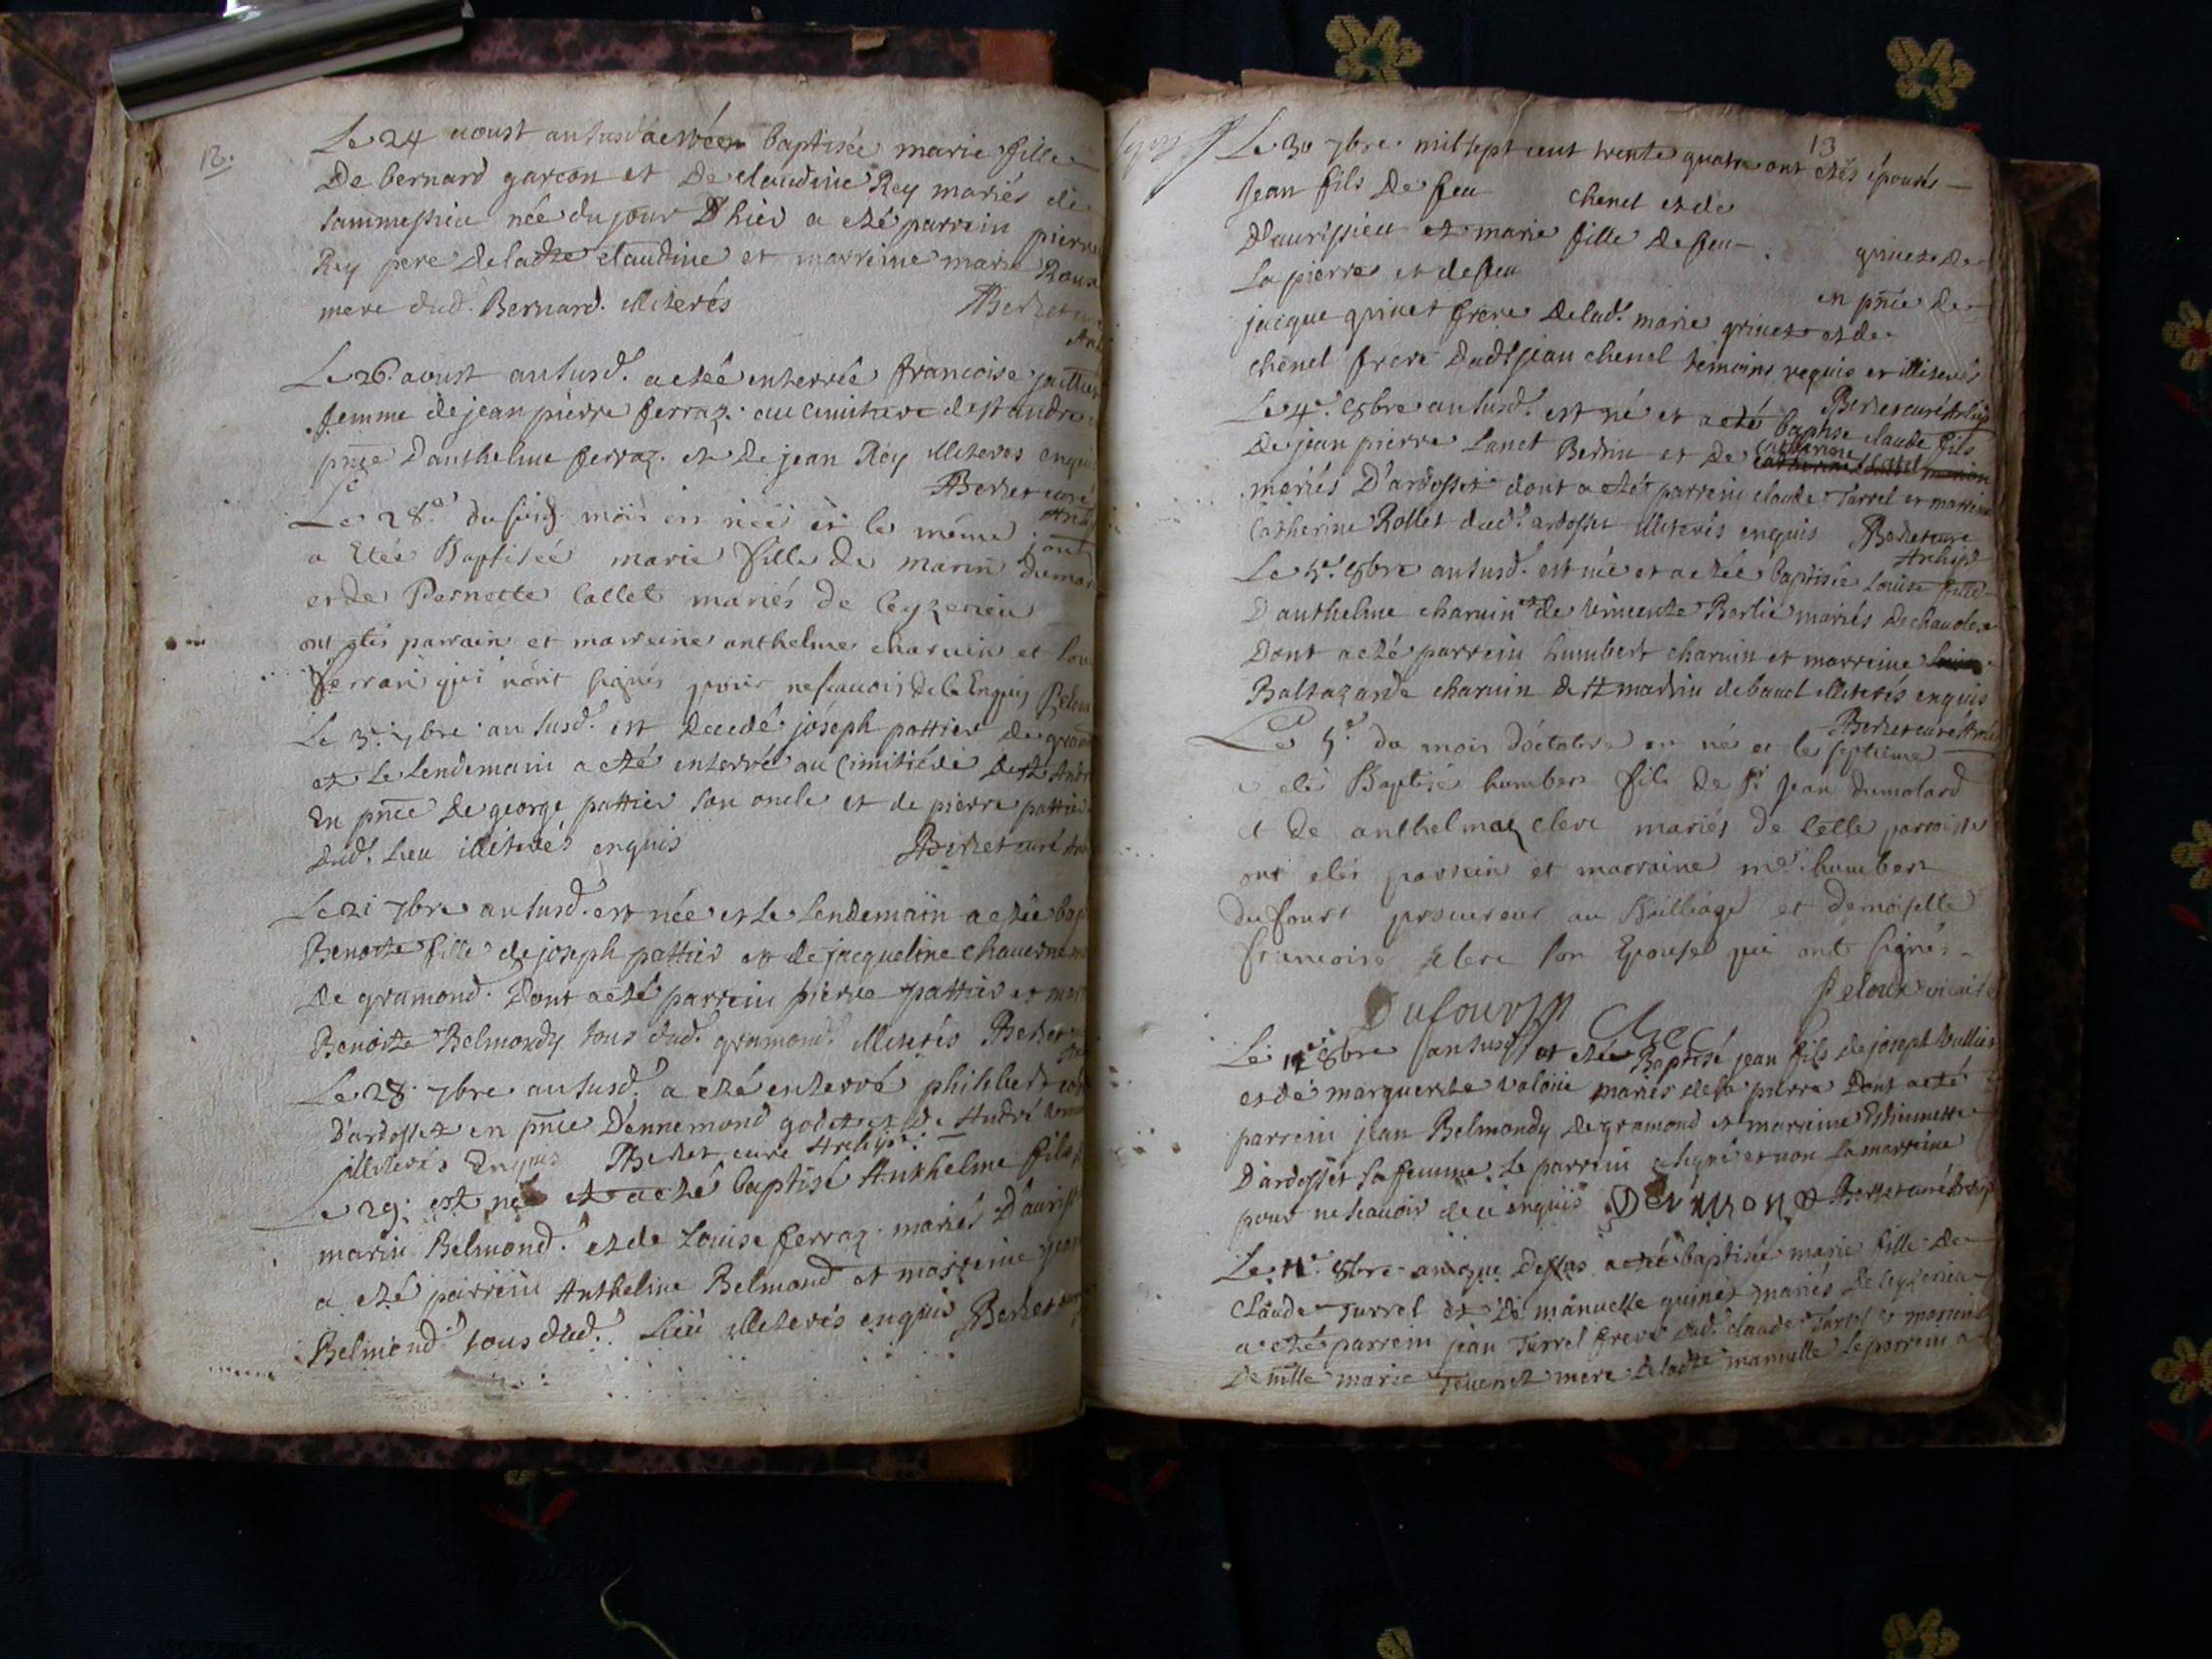 12.
Le 24 aoust an susd. a etée baptisée marie fille
De bernard garcon et De claudine Rey mariés de
sammessieu née du jour D'hier a eté parrein pierre
Rey pere deladte claudine et marreine marie Roux
mere dud. Bernard. illiterés Berlet
Le 26. aoust an susd. a etée enterrée francoise
femme de jean pierre ferraz. au cimitiere de st andre
pnce D'anthelme ferraz. et De jean Rey illiteres enquis
Berlet curé
Le 28e du susd. mois est née et le même jour
a Etée Baptisée marie fille de marin dumol
et de Pernette Collet mariés de Ceyzerieu
ont étés parrain et marreine anthelme charvin et
ferran qui n'ont signés pour ne scavoir de ce Enquis Peloux
Le 3e. 7bre an susd. est decedé joseph pattier de gramond
et Le Lendemain a eté enterré au Cimitiére de st André
En pnce de george pattier son oncle et de pierre pattier
dud. Lieu illiterés enquis Berlet curé
Le 21 7bre an susd. est née et Le Lendemain a etée bap
Benoite fille de joseph pattier et de jacqueline chauerne
de gramond. Dont a eté parrein pierre pattier et mar
Benoite Belmondy tous dud. gramond. illiterés Berlet
Le 28. 7bre an susd. a eté enterré philibert
D'ardosset en pnce D'ennemond godet et De André
illiterés Enquis Berlet curé Archip.
Le 29. est né et a eté baptisé Anthelme fils
marin Belmond. et de Louise ferraz. mariés D'auris
a eté parrein Anthelme Belmond et marreine jean
Belmond tous dud. Lieu illiterés enquis Berlet
13
Le 30 7bre. mil sept cent trente quatre ont étés épousés
Jean fils De feu chenel et de
D'aurissieu et marie fille de feu grinet De
La pierre et de feu en pnce de
jacque grinet frere delad. marie grinet et de
chenel frere Dudt jean chenel temoins requis et illiterés
Berlet curé Archip
Le 4e. 8bre an susd. est né et a eté baptisé claude fils
De jean pierre Lanet Bertin et De catherine
mariés D'ardosset dont a eté parrein claude Turrel et marreine
Catherine Rollet dud. ardosset illiterés enquis Berlet curé
Archip
Le 5e. 8bre an susd. est née et a etée baptisée Louise fille
D'anthelme charvin et de vincente Berlié mariés de chavoley
Dont a eté parrein humbert charvin et marreine
Baltazarde charvin de st martin de bavel illiterés enquis
Berlet curé Archi
Le 5e du mois d'octobre est né et le septieme
a eté Baptisé humbert fils de Sr Jean Dumolard
et de anthelmaz clerc mariés de cette parroisse
ont etés parrein et marraine mr. humbert
dufour procureur au Bailliage et demoiselle
francoise clerc son Epouse qui ont signés
Peloux vicaire
Dufour Clerc
Le 8bre an susd. at etée Baptisé jean fils de joseph Vullier
et de marguerite valoiie mariés de la pierre Dont a eté
parrein jean Belmondy de gramond et marreine Estiennette
D'ardosset sa femme. Le parrein a signé et non la marreine
pour ne scavoir de ce enquis Berlet curé Archip
Le 11e. 8bre an que Dessus a eté baptisée marie fille de
Claude Turrel et De manuelle guinet mariés de ceyzerieu
a eté parrein jean Turrel frere dud. claude Turrel et marreine
Demlle marie Tevenet mere deladte manuelle Le parrein a